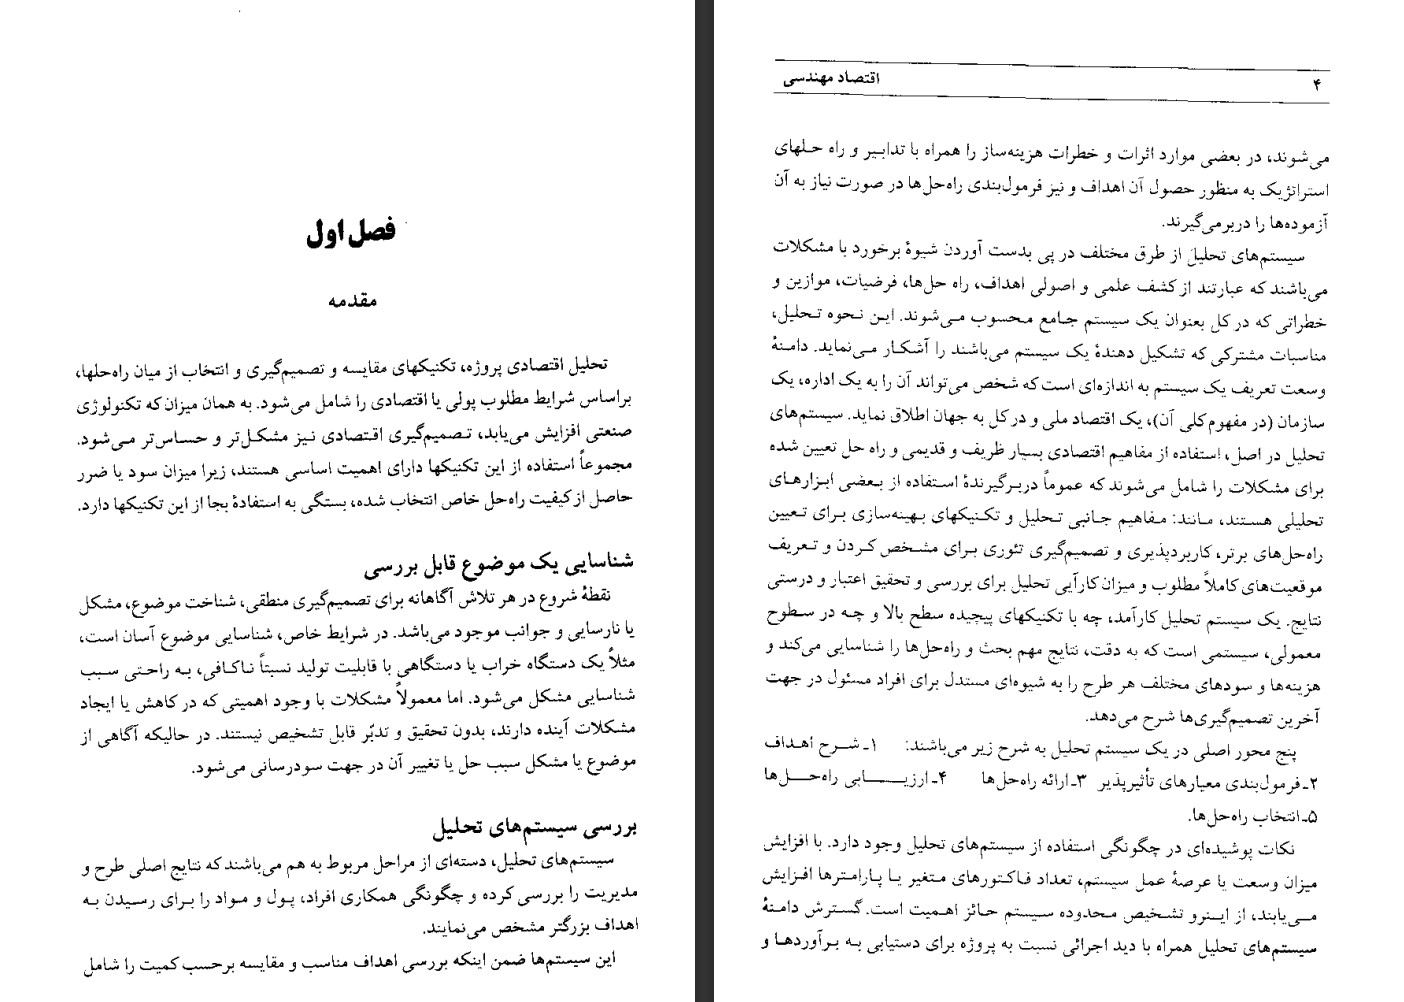 فصل اول
مقدمه
تحلیل اقتصادی پروژه، تکنیکهای مقایسه و تصمیم‌گیری و انتخاب از میان راه‌حلها،
براساس شرایط مطلوب پولی یا اقتصادی را شامل می‌شود. به همان میزان که تکنولوژی
صنعتی افزایش می‌یابد، تصمیم‌گیری اقتصادی نیز مشکل‌تر و حساس‌تر می‌شود.
مجموعاً استفاده از این تکنیکها دارای اهمیت اساسی هستند، زیرا میزان سود یا ضرر
حاصل از کیفیت راه‌حل خاص انتخاب شده، بستگی به استفادهٔ بجا از این تکنیکها دارد.
شناسایی یک موضوع قابل بررسی
نقطهٔ شروع در هر تلاش آگاهانه برای تصمیم‌گیری منطقی، شناخت موضوع، مشکل
یا نارسایی و جوانب موجود می‌باشد. در شرایط خاص، شناسایی موضوع آسان است،
مثلاً یک دستگاه خراب یا دستگاهی با قابلیت تولید نسبتاً ناکافی، به راحتی سبب
شناسایی مشکل می‌شود. اما معمولاً مشکلات با وجود اهمیتی که در کاهش یا ایجاد
مشکلات آینده دارند، بدون تحقیق و تدبّر قابل تشخیص نیستند. در حالیکه آگاهی از
موضوع یا مشکل سبب حل یا تغییر آن در جهت سودرسانی می‌شود.
بررسی سیستم‌های تحلیل
سیستم‌های تحلیل، دسته‌ای از مراحل مربوط به هم می‌باشند که نتایج اصلی طرح و
مدیریت را بررسی کرده و چگونگی همکاری افراد، پول و مواد را برای رسیدن به
اهداف بزرگتر مشخص می‌نمایند.
این سیستم‌ها ضمن اینکه بررسی اهداف مناسب و مقایسه برحسب کمیت را شامل
۴ اقتصاد مهندسی
می‌شوند، در بعضی موارد اثرات و خطرات هزینه‌ساز را همراه با تدابیر و راه حلهای
استراتژیک به منظور حصول آن اهداف و نیز فرمول‌بندی راه‌حل‌ها در صورت نیاز به آن
آزموده‌ها را دربرمی‌گیرند.
سیستم‌های تحلیل از طرق مختلف در پی بدست آوردن شیوهٔ برخورد با مشکلات
می‌باشند که عبارتند از کشف علمی و اصولی اهداف، راه حل‌ها، فرضیات، موازین و
خطراتی که در کل بعنوان یک سیستم جامع محسوب می‌شوند. این نحوه تحلیل،
مناسبات مشترکی که تشکیل دهندهٔ یک سیستم می‌باشند را آشکار می‌نماید. دامنهٔ
وسعت تعریف یک سیستم به اندازه‌ای است که شخص می‌تواند آن را به یک اداره، یک
سازمان (در مفهوم کلی آن)، یک اقتصاد ملی و در کل به جهان اطلاق نماید. سیستم‌های
تحلیل در اصل، استفاده از مفاهیم اقتصادی بسیار ظریف و قدیمی و راه حل تعیین شده
برای مشکلات را شامل می‌شوند که عموماً دربرگیرندهٔ استفاده از بعضی ابزارهای
تحلیلی هستند، مانند: مفاهیم جانبی تحلیل و تکنیکهای بهینه‌سازی برای تعیین
راه‌حل‌های برتر، کاربردپذیری و تصمیم‌گیری تئوری برای مشخص کردن و تعریف
موقعیت‌های کاملاً مطلوب و میزان کارآیی تحلیل برای بررسی و تحقیق اعتبار و درستی
نتایج. یک سیستم تحلیل کارآمد، چه با تکنیکهای پیچیده سطح بالا و چه در سطوح
معمولی، سیستمی است که به دقت، نتایج مهم بحث و راه‌حل‌ها را شناسایی می‌کند و
هزینه‌ها و سودهای مختلف هر طرح را به شیوه‌ای مستدل برای افراد مسئول در جهت
آخرین تصمیم‌گیری‌ها شرح می‌دهد.
پنج محور اصلی در یک سیستم تحلیل به شرح زیر می‌باشند: ۱ـ شرح اهداف
۲ـ فرمول‌بندی معیارهای تأثیرپذیر ۳ـ ارائه راه‌حل‌ها ۴ـ ارزیابی راه‌حل‌ها
۵ـ انتخاب راه‌حل‌ها.
نکات پوشیده‌ای در چگونگی استفاده از سیستم‌های تحلیل وجود دارد. با افزایش
میزان وسعت یا عرصهٔ عمل سیستم، تعداد فاکتورهای متغیر یا پارامترها افزایش
می‌یابند، از اینرو تشخیص محدوده سیستم حائز اهمیت است. گسترش دامنهٔ
سیستم‌های تحلیل همراه با دید اجرائی نسبت به پروژه برای دستیابی به برآوردها و